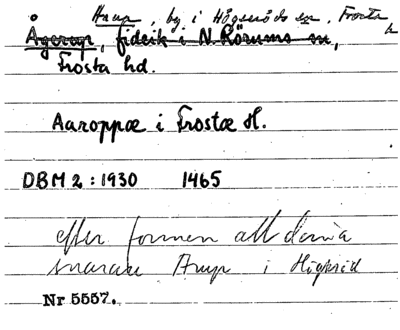 Arup, by i Högseröds sn, Frosta h
Ågerup, fideik i N. Rörums sn,
Frosta hd.
Aaroppæ i Frostæ H.
DBM 2: 1930 1465
efter formen att döma
snarare Arup i Högseröd
Nr 5557.